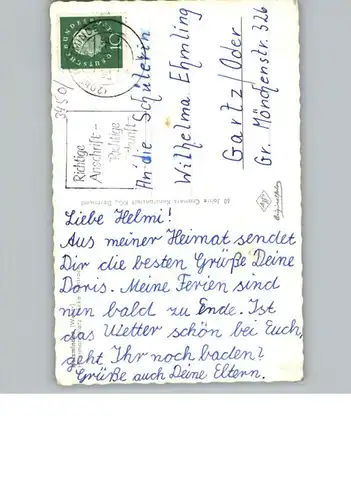 DEUTSCHE BUNDESPOST
10
3950/
Richtige
Anschrift-
An die Schülerin
Wilhelma Ehmling
Gartz/Oder
Gr. Mönchenstr. 326
60 Jahre Cramers Kunstanstalt KG., Dortmund
Liebe Helmi!
Aus meiner Heimat sendet
Dir die besten Grüße Deine
Doris. Meine Ferien sind
nun bald zu Ende. Ist
das Wetter schön bei Euch,
geht Ihr noch baden?
Grüße auch Deine Eltern.